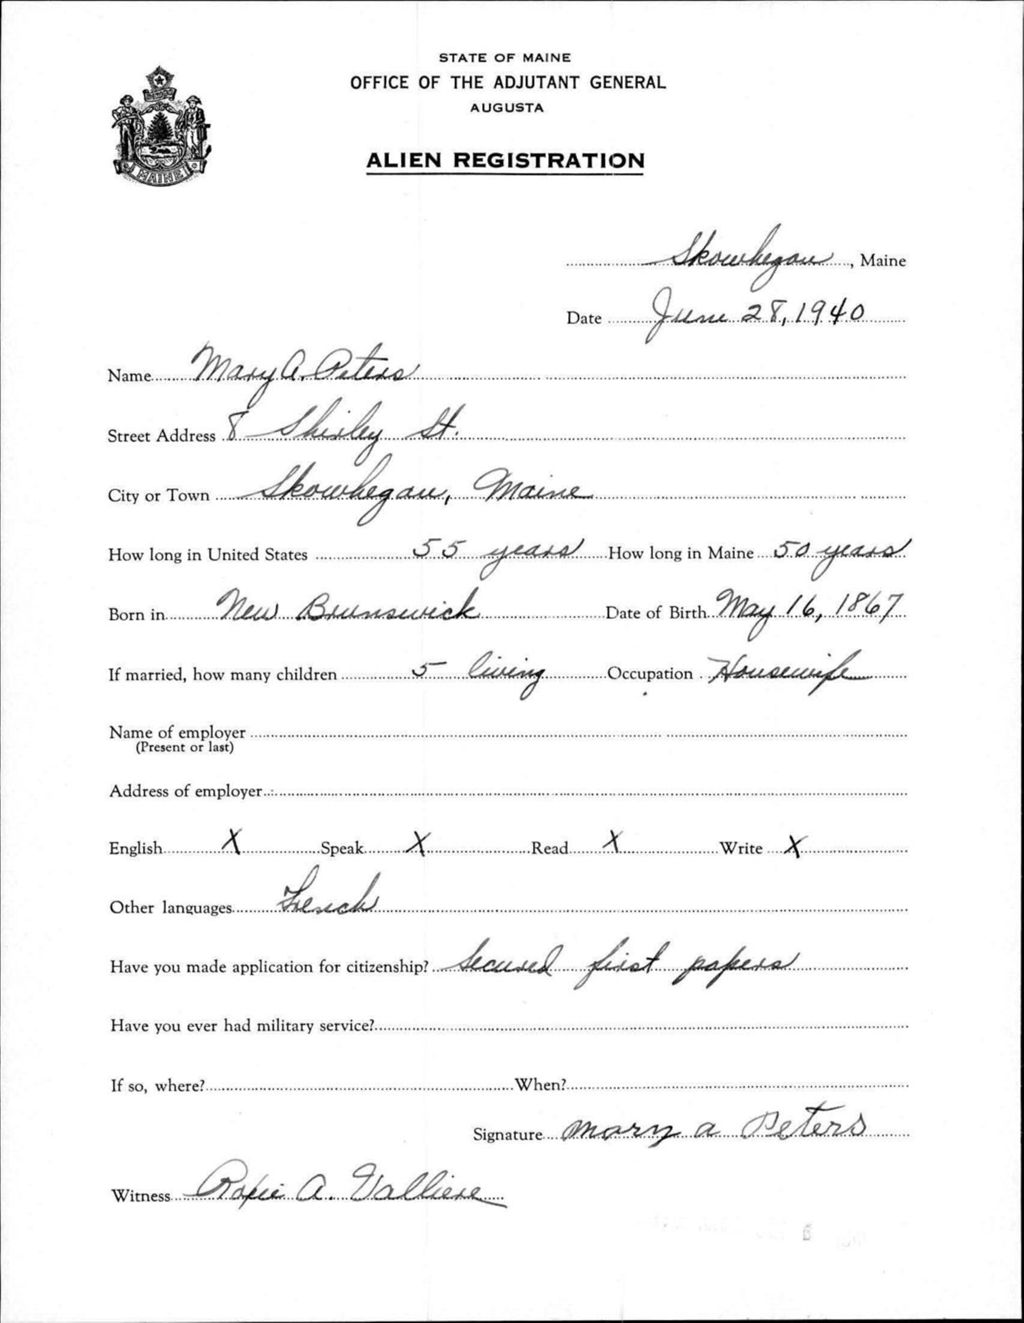 STATE OF MAINE
OFFICE OF THE ADJUTANT GENERAL
AUGUSTA
ALIEN REGISTRATION
MAINE
Skowhegan, Maine
Date June 28, 1940
Name Mary A. Peters
Street Address 8 Shirley St.
City or Town Skowhegan, Maine
How long in United States 55 years How long in Maine 50 years
Born in New Brunswick Date of Birth May 16, 1867
If married, how many children 5 living Occupation Housewife
Name of employer
(Present or last)
Address of employer
English X Speak X Read X Write X
Other languages French
Have you made application for citizenship? Secured first papers
Have you ever had military service?
If so, where? When?
Signature Mary A Peters
Witness A. Valliere